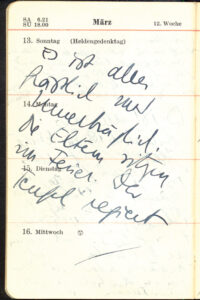 SA 6.21
SU 18.00
März
12. Woche
13. Sonntag (Heldengedenktag)
Es ist alles
und
unerträglich.
14. Montag
Die Eltern sitzen
im Feuer. Der
15. Dienstag
Teufel regiert
16. Mittwoch